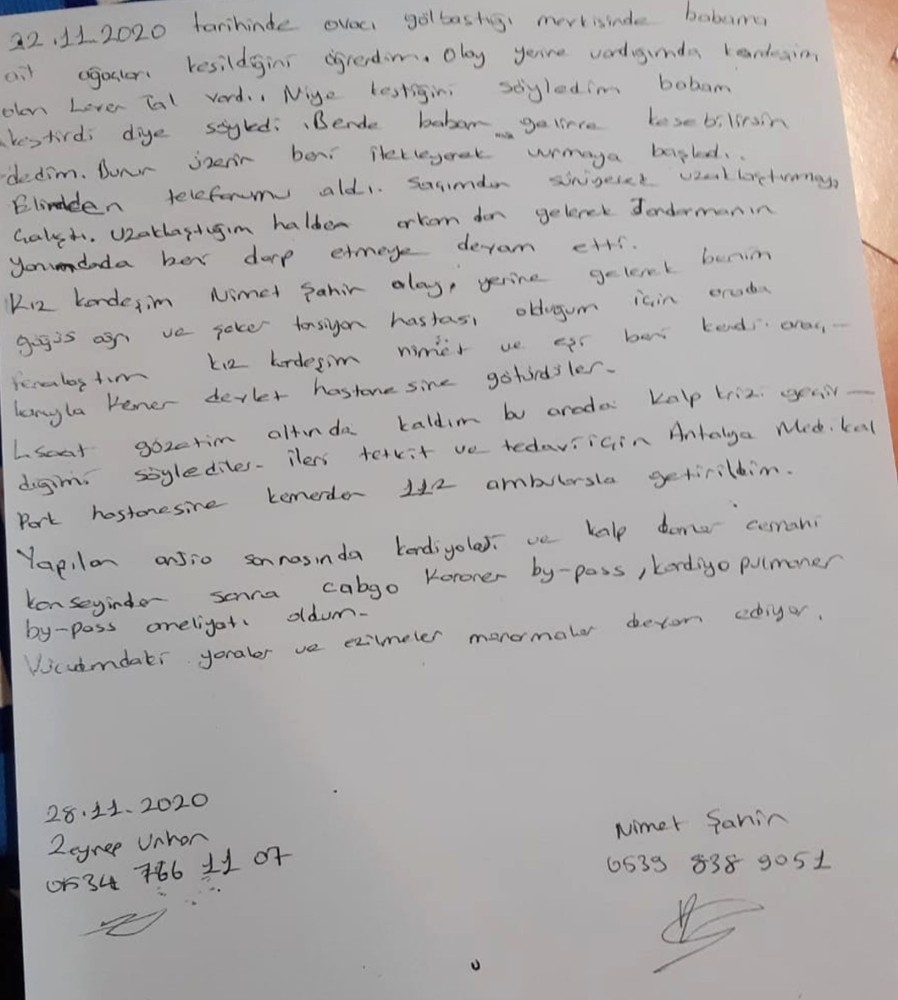 22.11.2020 tarihinde ovacı gölbastığı mevkisinde babama
ait ağaçları kesildiğini öğrendim. Olay yerine vardığımda kardeşim
olan Leven Tal vardı. Niye kestiğini söyledim babam
kestirdi diye söyledi. Bende babam gelince kesebilirsin
dedim. Bunun üzerin beni itekleyerek vurmaya başladı.
Elimden telefonumu aldı. Saçımdan uzaklaştırmaya
Çalıştı. Uzaklaştığım halden arkamdan gelerek Jandarmanın
yanındada beni darp etmeye devam etti.
Kız kardeşim Nimet Şahin olay, yerine gelerek benim
göğüs ağrı ve şeker tansiyon hastası olduğum için orada
fenalaştım kız kardeşim nimet ve eşi beni kendi araç-
larıyla Kemer devlet hastanesine götürdüler.
saat gözetim altında kaldım bu arada kalp krizi geçir-
diğimi söylediler. ileri tetkit ve tedavi için Antalya Medikal
Park hastanesine kemerden 112 ambulansla getirildim.
Yapılan anjio sonrasında kardiyoloji ve kalp damar cerrahi
konseyinden sonra cabgo Koroner by-pass, kardiyo pulmoner
by-pass ameliyatı oldum.
Vücudumdaki yaralar ve ezilmeler morarmalar devam ediyor.
28.11.2020
Zeynep Unhan
0534 766 11 07
Nimet Şahin
0539 838 9051